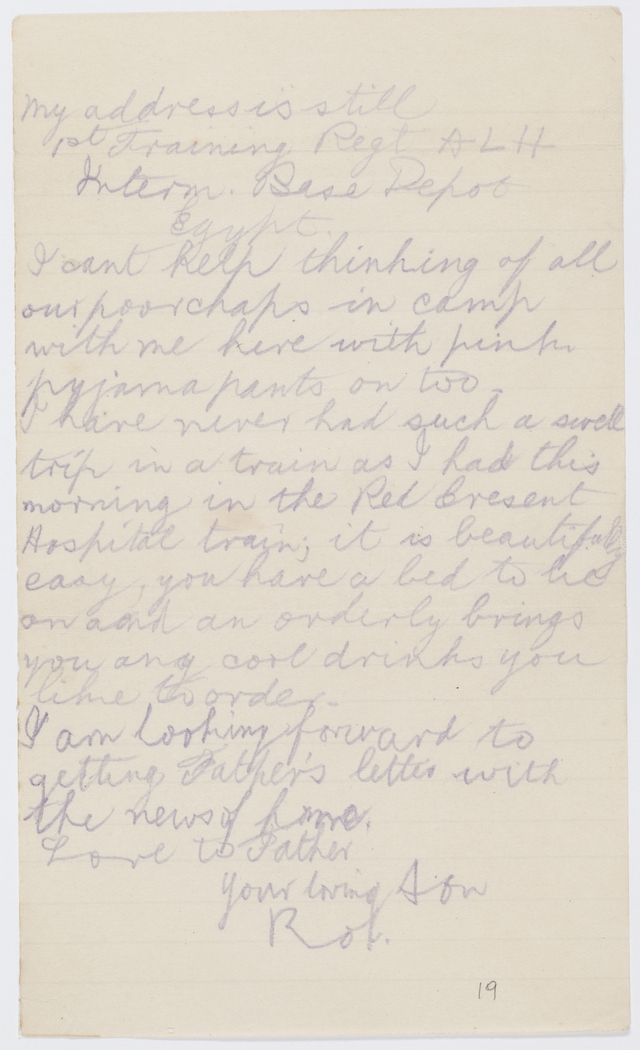 My address is still
1st Training Regt A L H
Interm. Base Depot
Egypt.
I cant help thinking of all
our poor chaps in camp
with me here with pink
pyjama pants on too.
I have never had such a swell
trip in a train as I had this
morning in the Red Cresent
Hospital train; it is beautifully
easy, you have a bed to lie
on and an orderly brings
you any cool drinks you
like to order.
I am looking forward to
getting Father's letter with
the news of home.
Love to Father
Your loving Son
19